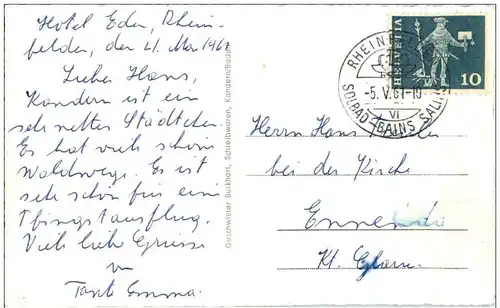 Hotel Eden, Rhein-
felden, den 4. Mai 1961
Lieber Hans,
Kandern ist ein
sehr nettes Städtchen.
Es hat viele schöne
Waldwege. Es ist
sehr schön für ein
Pfingstausflug.
Viele liebe Grüsse
von
Tante Emma.
Geschwister Burkhart, Schreibwaren, Kandern/Baden
HELVETIA
10
RHEINFELDEN
-5.V.61-18
VI
SOLBAD BAINS SALINS
Herrn Hans
bei der Kirche
Ennenda
Kt. Glarus.